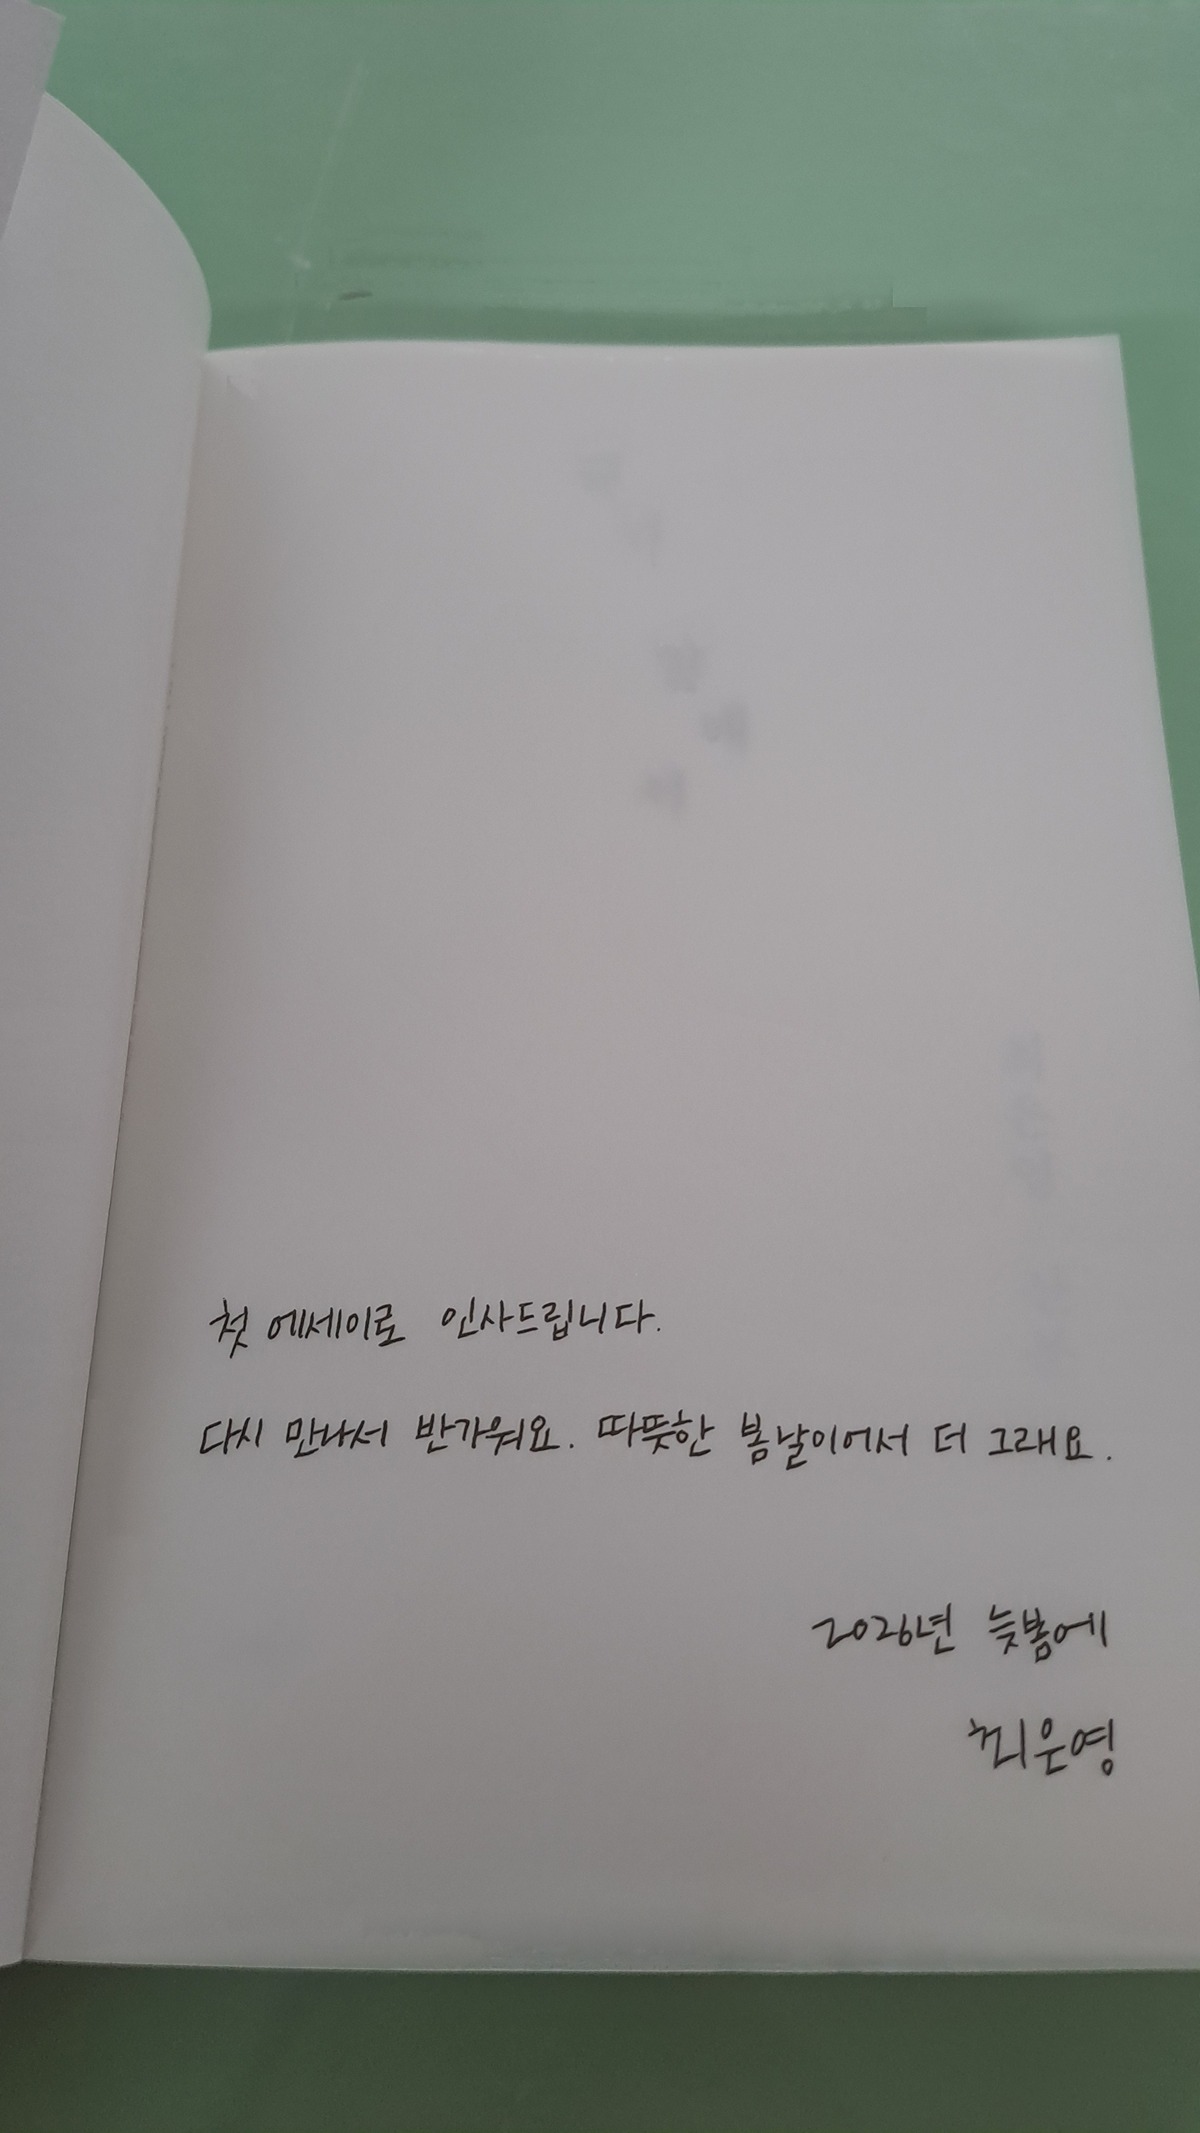 첫 에세이로 인사드립니다.
다시 만나서 반가워요. 따뜻한 봄날이어서 더 그래요.
2026년 늦봄에
최은영